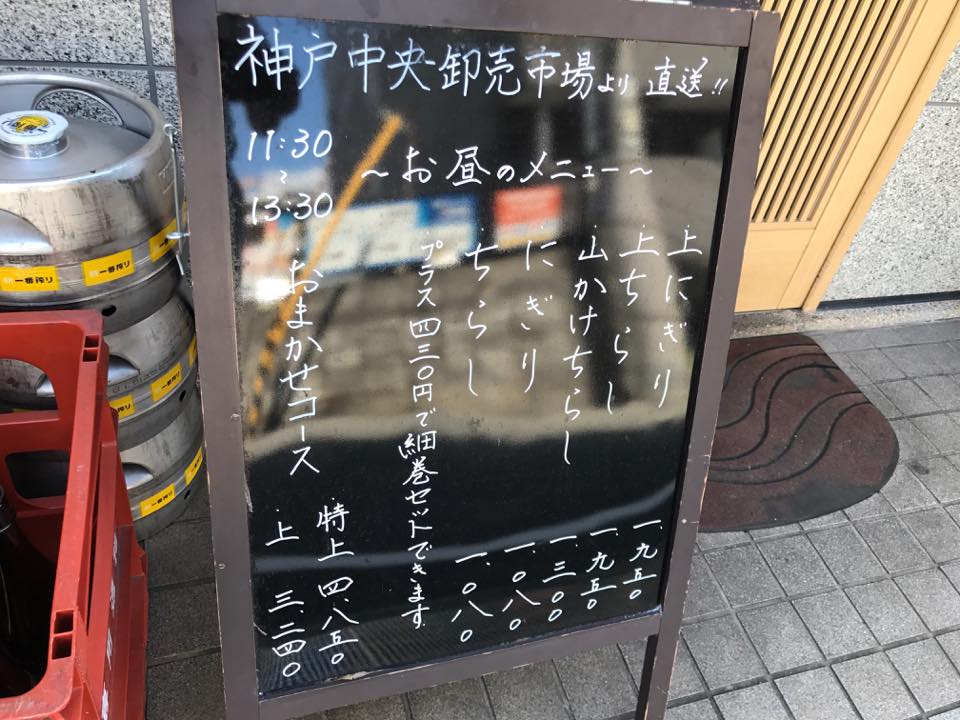 神戸中央卸売市場より 直送!!
11:30
~
13:30
～お昼のメニュー～
・上にぎり 一、九五〇
・上ちらし 一、九五〇
・山かけちらし 一、三〇〇
・にぎり 一、〇八〇
・ちらし 一、〇八〇
プラス四三〇円で細巻セットできます
・おまかせコース
特上 四、八五〇
上 三、二四〇
一番搾り
一番搾り
一番搾り
一番搾り
一番搾り